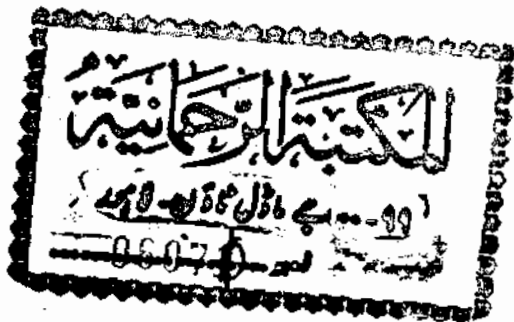 المكتبة الرحمانية
۹۹ --- جے ماڈل ٹاؤن - لاہور
نمبر